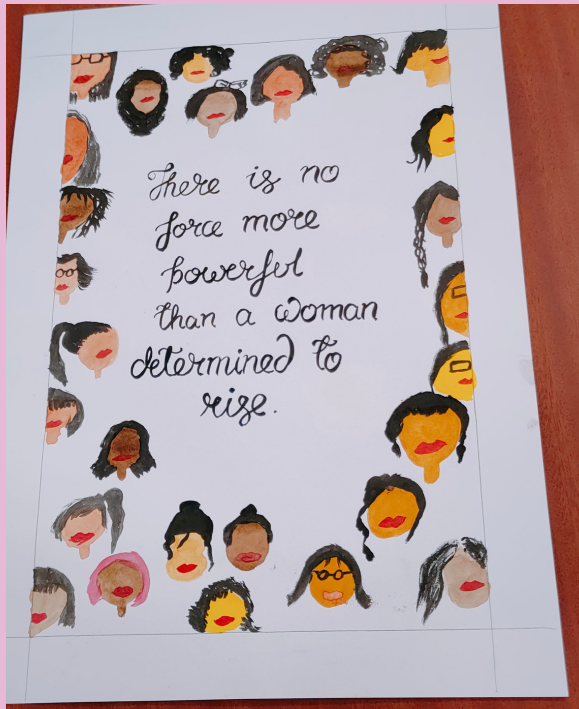 There is no
force more
powerful
than a woman
determined to
rise.